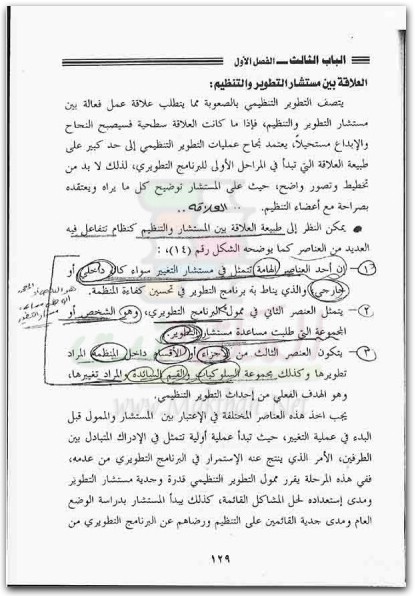 الباب الثالث ـــ الفصل الأول
العلاقة بين مستشار التطوير والتنظيم:
يتصف التطوير التنظيمي بالصعوبة مما يتطلب علاقة عمل فعالة بين
مستشار التطوير والتنظيم، فإذا ما كانت العلاقة سطحية فسيصبح النجاح
والإبداع مستحيلاً، يعتمد نجاح عمليات التطوير التنظيمي إلى حد كبير على
طبيعة العلاقة التي تبدأ في المراحل الأولى للبرنامج التطويري، لذلك لا بد من
تخطيط وتصور واضح، حيث على المستشار توضيح كل ما يراه ويعتقده
بصراحة مع أعضاء التنظيم.
العلاقة
• يمكن النظر إلى طبيعة العلاقة بين المستشار والتنظيم كنظام تتفاعل فيه
العديد من العناصر كما يوضحه الشكل رقم (١٤)،:
١- إن أحد العناصر الهامة تتمثل في مستشار التغيير سواء كان داخلي أو
خارجي، والذي يناط به برنامج التطوير في تحسين كفاءة المنظمة.
٢- يتمثل العنصر الثاني في ممول البرنامج التطويري، وهو الشخص أو
المجموعة التي طلبت مساعدة مستشار التطوير.
٣- يتكون العنصر الثالث من الأجزاء أو الأقسام داخل المنظمة المراد
تطويرها وكذلك مجموعة السلوكيات والقيم السائدة والمراد تغييرها،
وهو الهدف الفعلي من إحداث التطوير التنظيمي.
يجب اخذ هذه العناصر المختلفة في الإعتبار بين المستشار والممول قبل
البدء في عملية التغيير، حيث تبدأ عملية أولية تتمثل في الإدراك المتبادل بين
الطرفين، الأمر الذي ينتج عنه الإستمرار في البرنامج التطويري من عدمه،
ففي هذه المرحلة يقرر ممول التطوير التنظيمي قدرة وجدية مستشار التطوير
ومدى إستعداده لحل المشاكل القائمة، كذلك يبدأ المستشار بدراسة الوضع
العام ومدى جدية القائمين على التنظيم ورضاهم عن البرنامج التطويري من
١٢٩